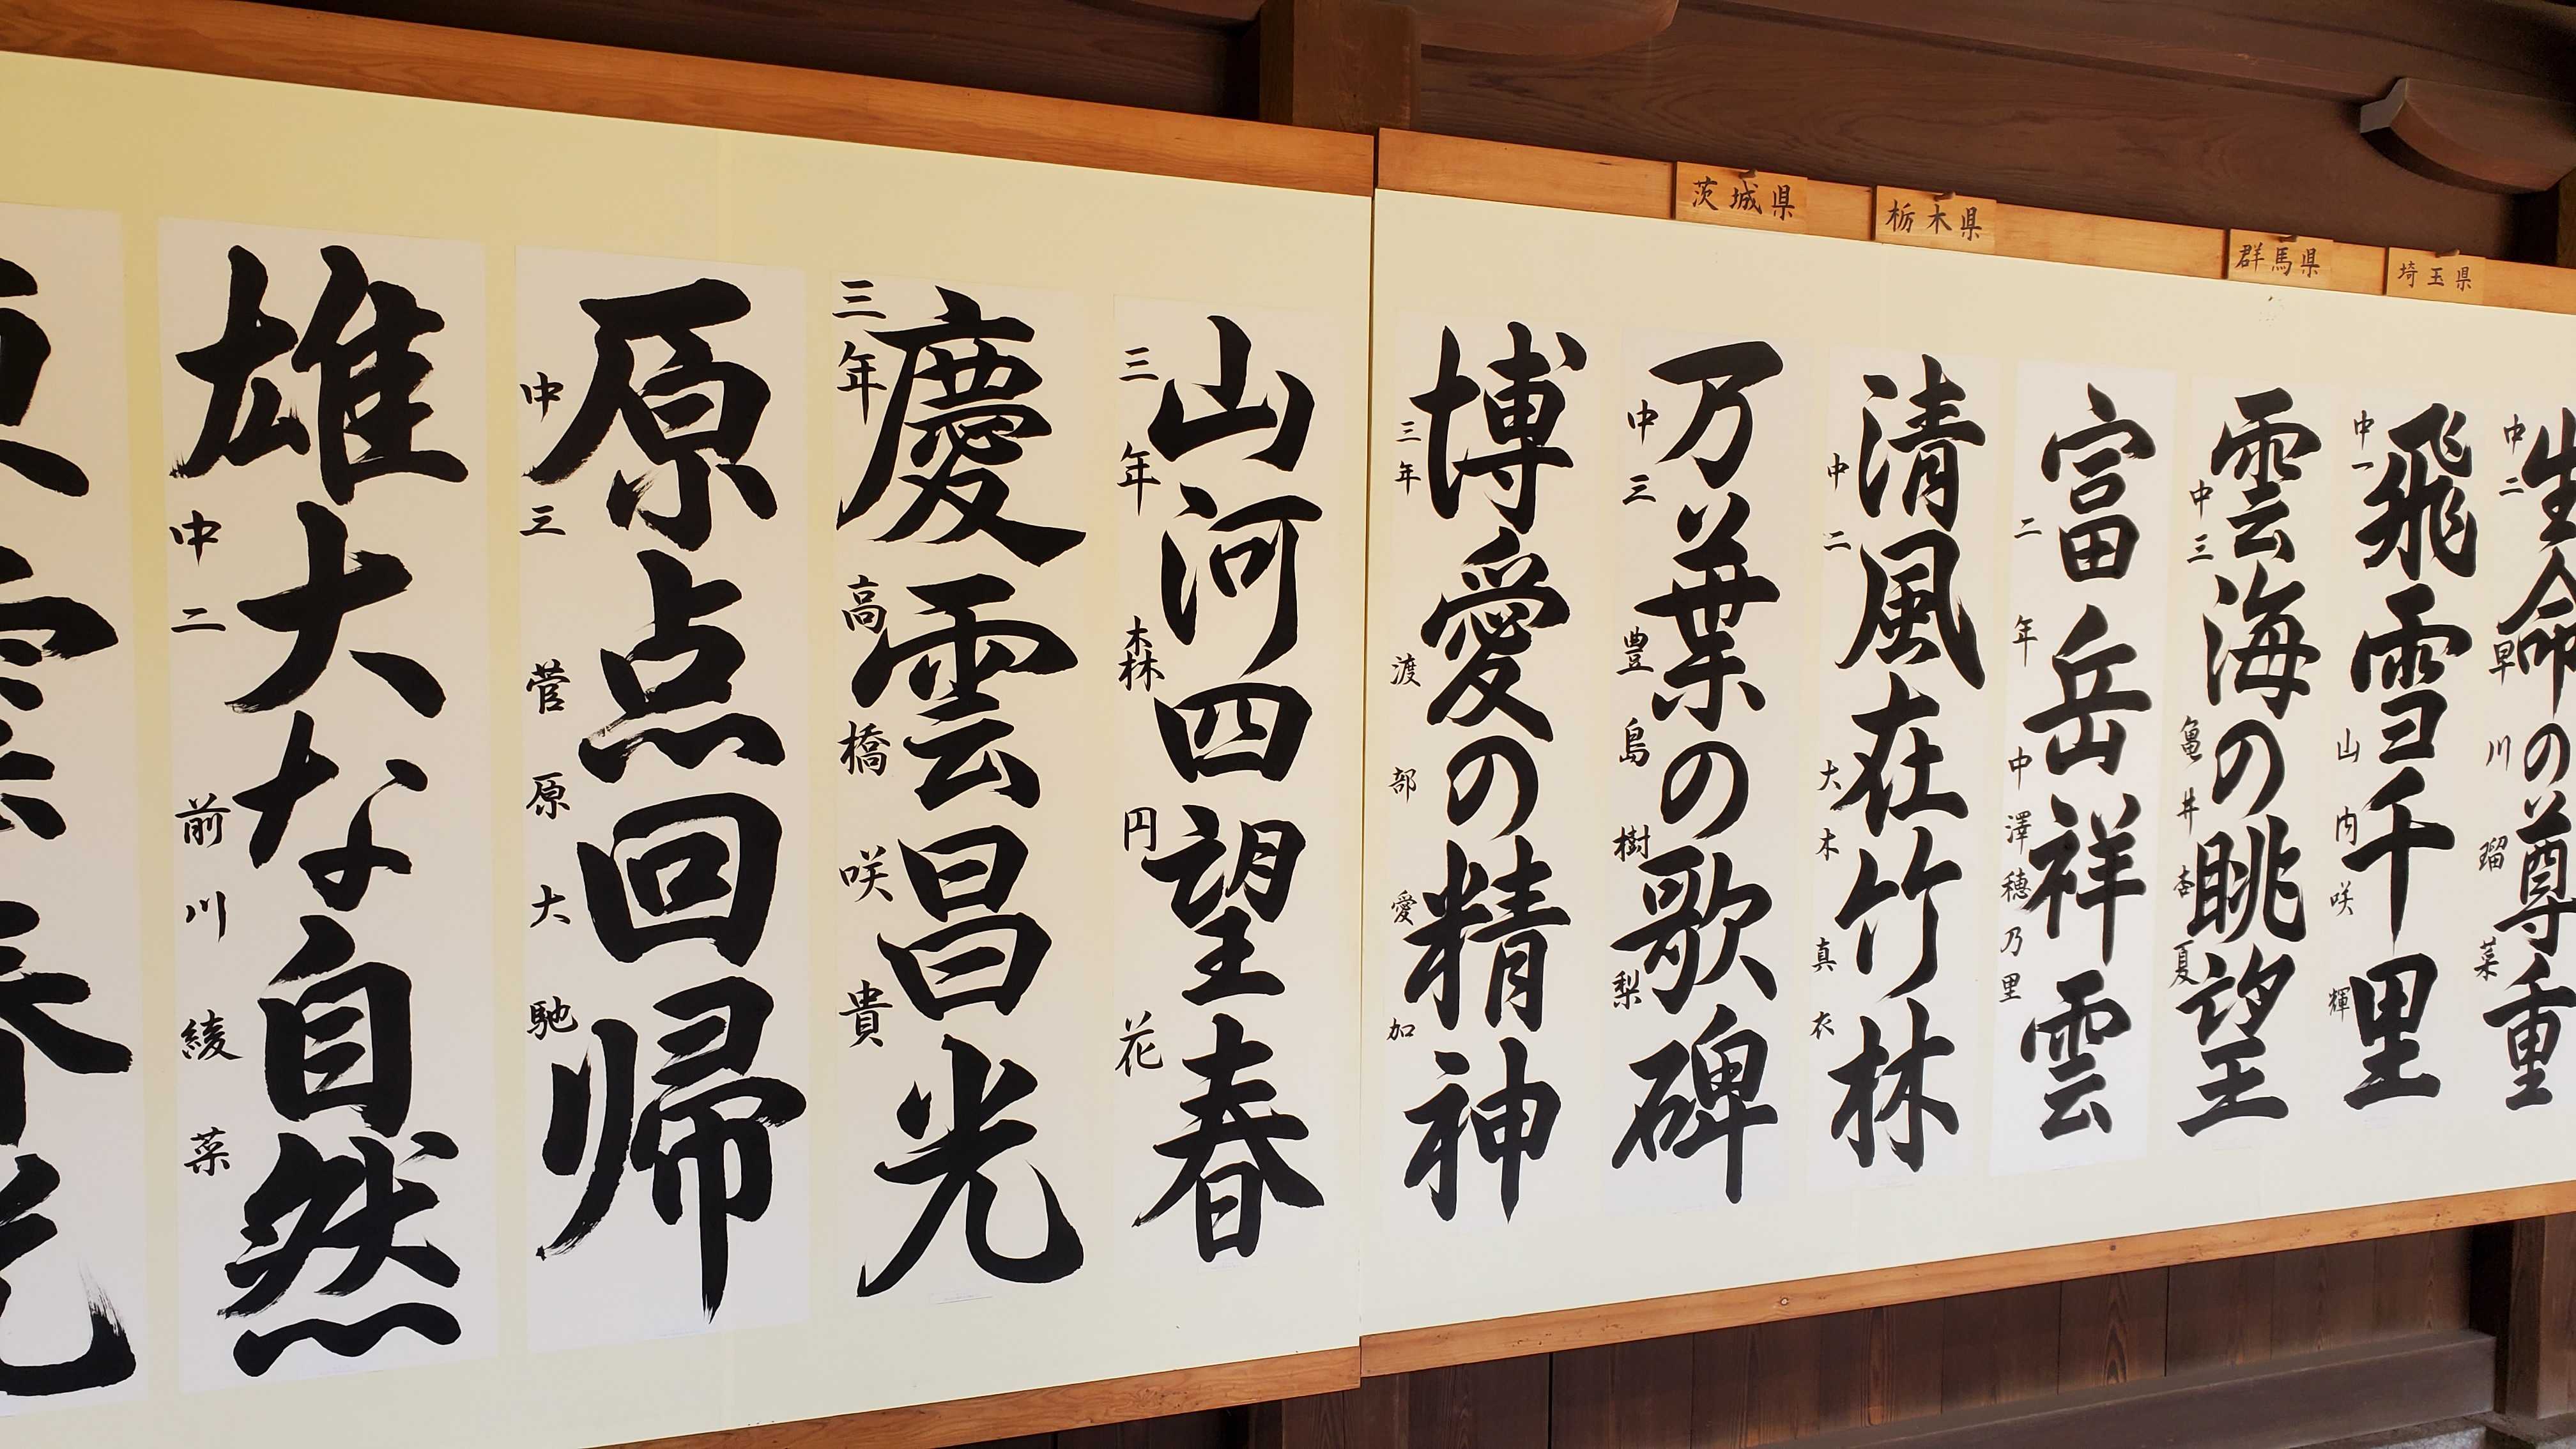 茨城県
栃木県
群馬県
埼玉県
生命の尊重
中二 早川瑠菜
飛雪千里
中一 山内咲輝
雲海の眺望
中三 亀井杏夏
富岳祥雲
二年 中澤穂乃里
清風在竹林
中二 大木真衣
万葉の歌碑
中三 豊島樹梨
博愛の精神
三年 渡部愛加
山河四望春
三年 森円花
慶雲昌光
三年 高橋咲貴
原点回帰
中三 菅原大馳
雄大な自然
中二 前川綾菜